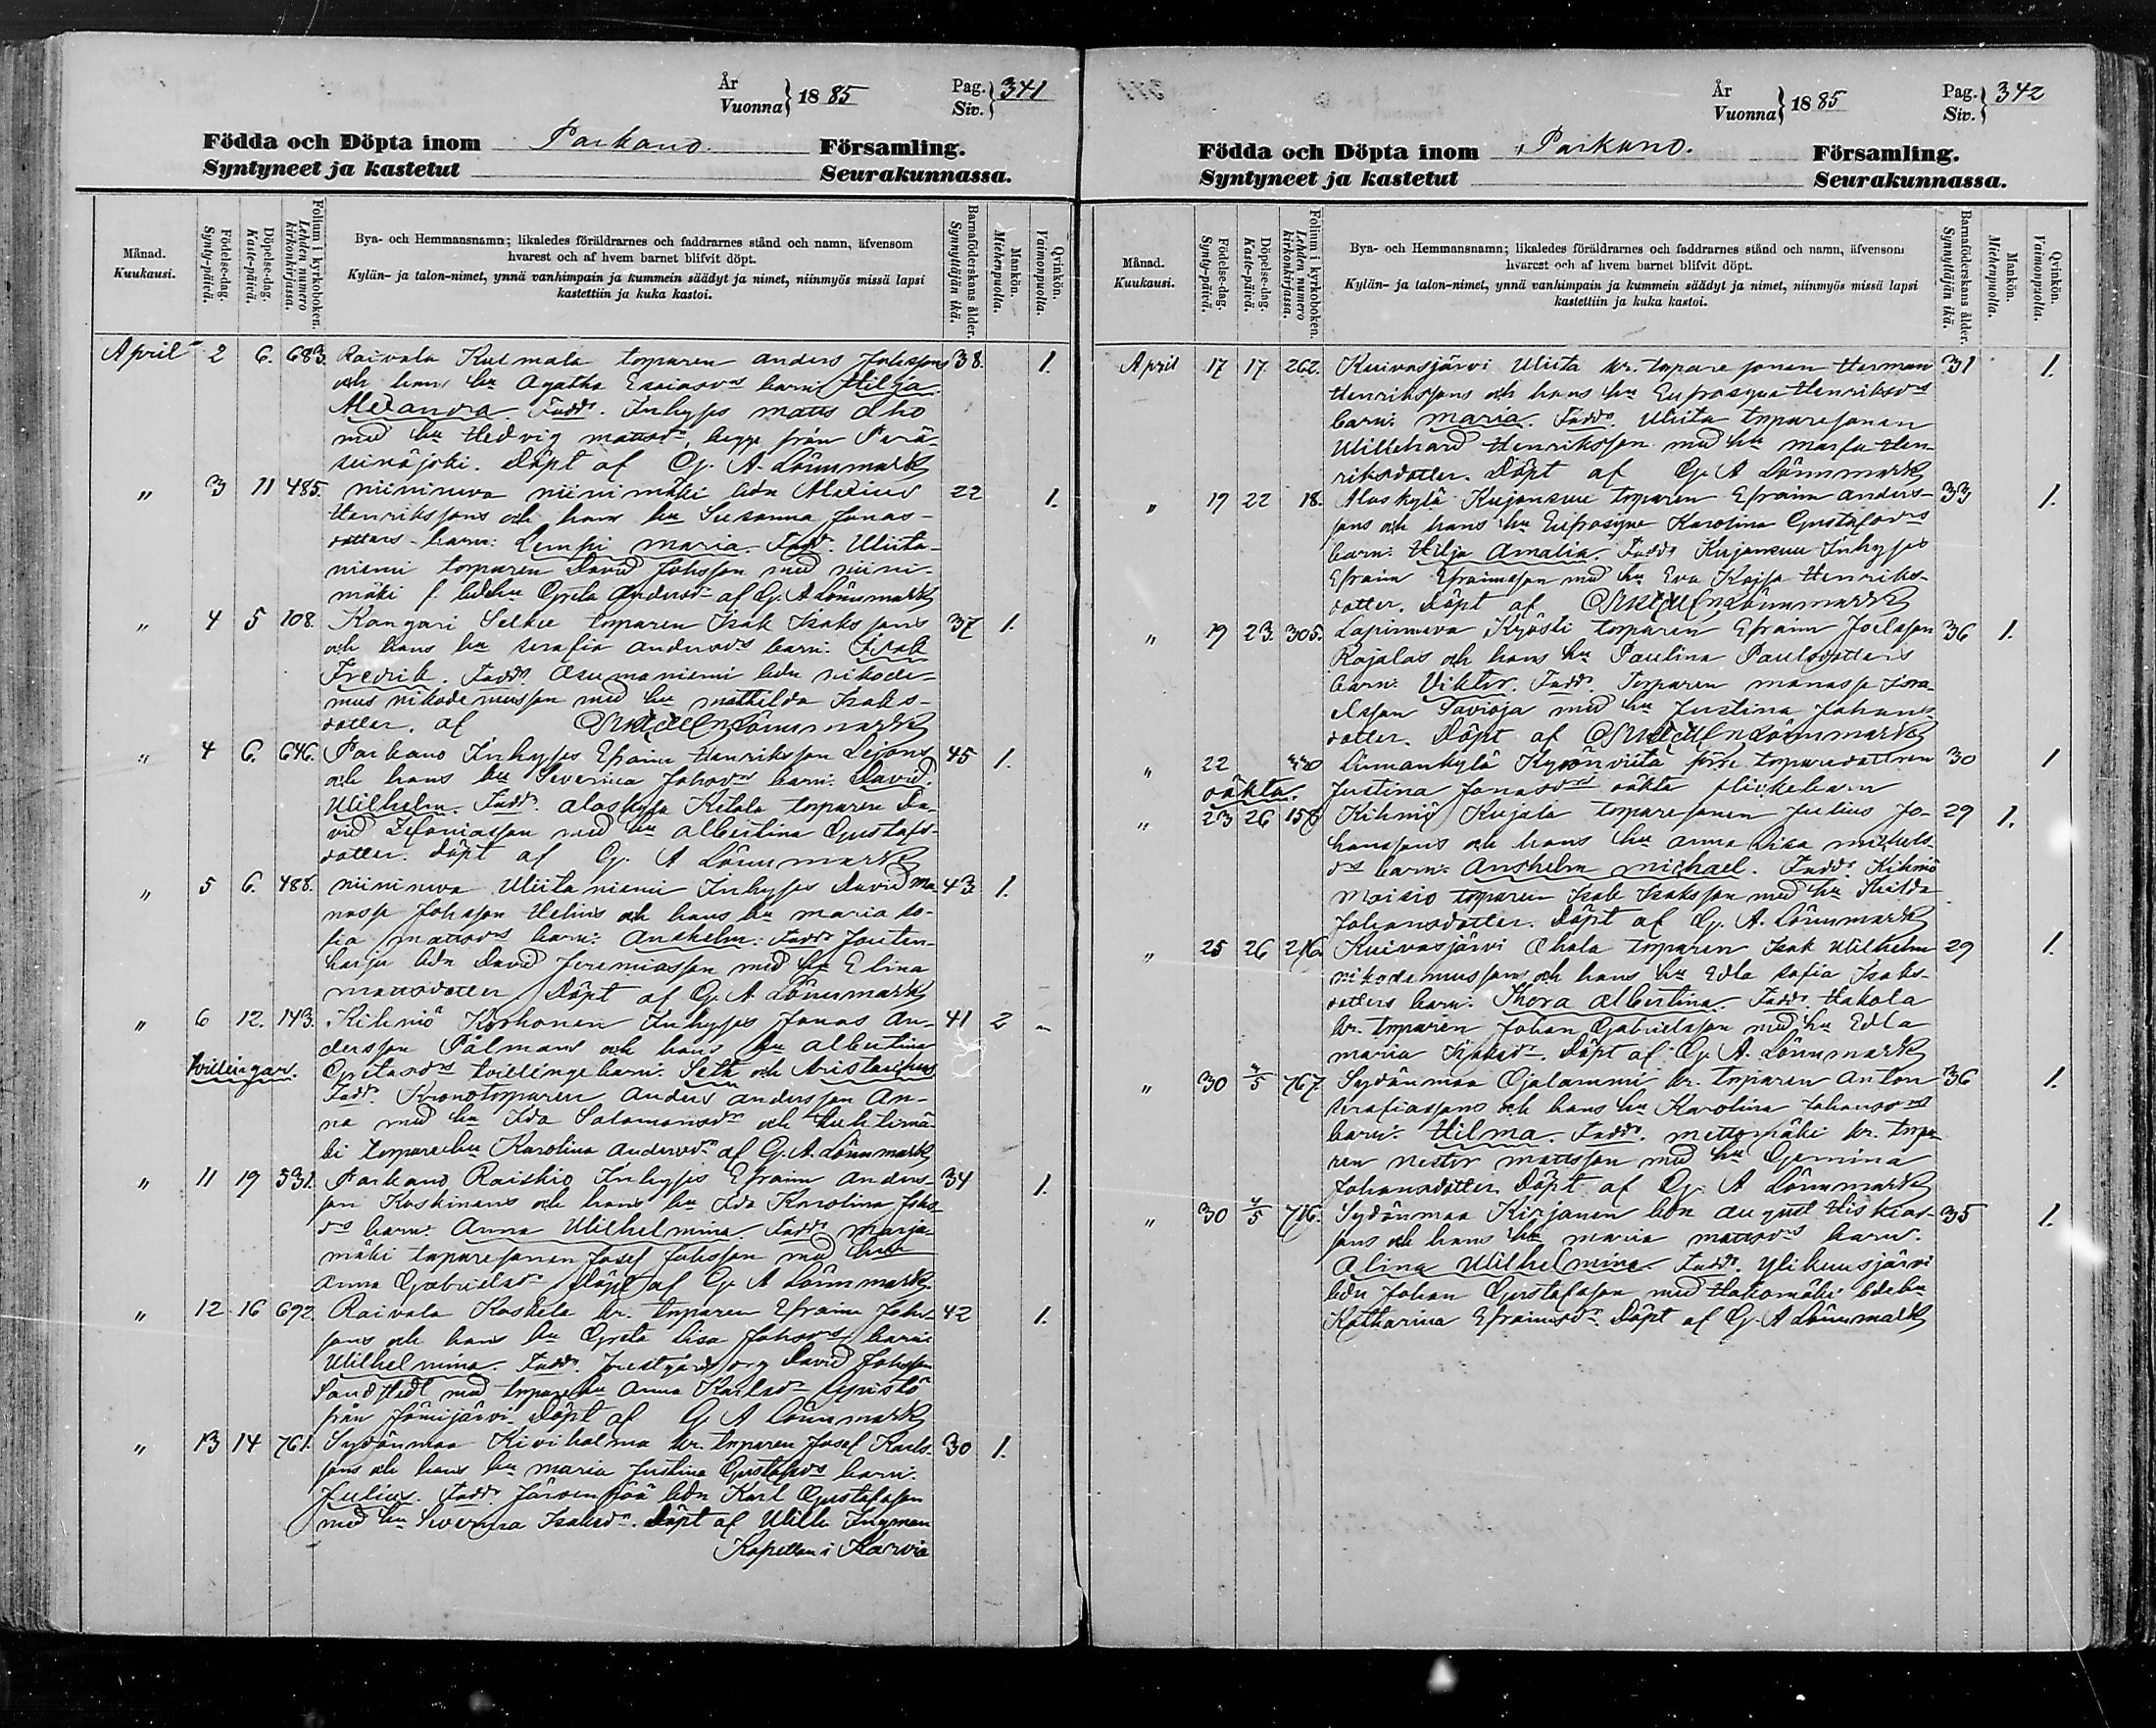 År
Vuonna } 1885 Pag.
Siv. } 341
Födda och Döpta inom Parkano. Församling.
Syntyneet ja kastetut Seurakunnassa.
Månad.
Kuukausi.
Födelse-dag.
Synty-päivä.
Döpelse-dag.
Kaste-päivä.
Folium i kyrkoboken.
Lehden numero kirkonkirjassa.
Bya- och Hemmansnamn; likaledes föräldrarnes och faddrarnes stånd och namn, äfvensom
hvarest och af hvem barnet blifvit döpt.
Kylän- ja talon-nimet, ynnä vanhimpain ja kummein säädyt ja nimet, niinmyös missä lapsi
kastettiin ja kuka kastoi.
Barnaföderskans ålder.
Synnyttäjän ikä.
Mankön.
Miehenpuolta.
Qvinkön.
Vaimonpuolta.
April 2 6. 683. Raivala KuLmala torparen Anders Johssons 38. 1.
och hans hu Agatha Esaiasds barn: Hilja
Alexandra. Fadd. Inhyses Matts Aho
med hu Hedvig Mattsdr, begge från Perä-
seinäjoki. Döpt af G. A. Lönnmark
" 3 11 485. Niinineva Niinimäki bdn Alexius 22 1.
Henrikssons och hans hu Susanna Jonas-
dotters barn: Lempi Maria. Fadd. Uliita-
niemi torparen David Johsson med Niini-
mäki f. bdehu Greta Andersdr af G. A Lönnmark
" 4 5 108. Kangari Selkee torparen Isak Isakssons 37 1.
och hans hu Serafia Andersds barn: Isak
Fredrik. Fadd. Asumaniemi bdn Nikode-
mus Nikodemusson med hu Mathilda Isaks-
dotter. af Lönnmark
" 4 6. 646. Parkano Inhyses Efraim Henriksson Lejons 45 1.
och hans hu Severina Johsds barn: David
Wilhelm. Fadd. Alaskylä Ketala torparen Da-
vid Zefaniasson med hu Albertina Gustafs-
dotter. Döpt af G. A Lönnmark
" 5 6. 488. Niinineva Uliitaniemi Inhyses David Ma- 43 1.
nasse Johsson Helins och hans hu Maria So-
fia Mattsds barn: Anshelm. Fadd. Jouten-
harju bdn David Jeremiasson med hu Elina
Mattsdotter. Döpt af G. A. Lönnmark
" 6 12. 143. Kihniö Korhonen Inhyses Jonas An- 41 2 "
dersson Pålmans och hans hu Albertina
tvillingar. Gretasds tvillingebarn: Seth och Aristarchus
Fadd. Kronotorparen Anders Andersson An-
na med hu Ida Salomonsdr och Luhtimä-
ki torparehu Karolina Andersdr af G. A. Lönnmark
" 11 19 531. Parkano Raiskio Inhyses Efraim Anders- 34 1.
son Koskinens och hans hu Ida Karolina Johs-
ds barn: Anna Wilhelmina. Fadd. Marja-
mäki torparesonen Josef Johsson med hu
Anna Gabrielsdr Döpt af G. A Lönnmark
" 12 16 692. Raivala Koskela kr. torparen Efraim Johs- 42 1.
sons och hans hu Greta Lisa Johsds barn:
Wilhelmina. Fadd. Prestgårds drg David Johsson
Sandstedt med torparehu Anna Karlsdr
från Jämijärvi. Döpt af G A Lönnmark
" 13 14 761. Sydänmaa Kiviholma kr. torparen Josef Karls- 30 1.
sons och hans hu Maria Justina Gustafsds barn:
Julius. Fadd. Järvenpää bdn Karl Gustafsson
med hu Severina Isaksdr. Döpt af Wille Ingman
Kapellan i Karvia
År
Vuonna } 1885 Pag.
Siv. } 342
Födda och Döpta inom Parkano. Församling.
Syntyneet ja kastetut Seurakunnassa.
Månad.
Kuukausi.
Födelse-dag.
Synty-päivä.
Döpelse-dag.
Kaste-päivä.
Folium i kyrkoboken.
Lehden numero kirkonkirjassa.
Bya- och Hemmansnamn; likaledes föräldrarnes och faddrarnes stånd och namn, äfvensom
hvarest och af hvem barnet blifvit döpt.
Kylän- ja talon-nimet, ynnä vanhimpain ja kummein säädyt ja nimet, niinmyös missä lapsi
kastettiin ja kuka kastoi.
Barnaföderskans ålder.
Synnyttäjän ikä.
Mankön.
Miehenpuolta.
Qvinkön.
Vaimonpuolta.
April 17 17. 262. Kuivasjärvi Uliita kr. torparesonen Herman 31 1.
Henrikssons och hans hu Eufrosyna Henriksds
barn: Maria. Fadd. Uliita torparesonen
Willehard Henriksson med hu Marfa Hen-
riksdotter. Döpt af G. A Lönnmark
" 19 22 18. Alaskylä Kujansuu torparen Efraim Anders- 33 1.
sons och hans hu Eufrosyne Karolina Gustafsds
barn: Hilja Amalia. Fadd. Kujansuu Inhyses
Efraim Efraimsson med hu Eva Kajsa Henriks-
dotter. Döpt af Lönnmark
" 19 23. 305. Lapinneva Kyösti torparen Efraim Joelsson 36 1.
Rajalas och hans hu Paulina Paulsdotters
barn: Viktor. Fadd. Torparen Manasse Isra-
elsson Savioja med hu Justina Johans-
dotter. Döpt af Lönnmark
" 22 Linnankylä Kyrönviita förre torparedottren 30 1
oäkta. Justina Jonasds oäkta flickebarn
" 23 26 158 Kihniö Kujala torparesonen Julius Jo- 29 1.
hanssons och hans hu Anna Lisa Michels-
ds barn: Anshelm Michael. Fadd. Kihniö
Moisio torparen Isak Isaksson med hu Hilda
Johansdotter. Döpt af G. A. Lönnmark
" 25 26 216. Kuivasjärvi Ohola torparen Isak Wilhelm 29 1.
Nikodemussons och hans hu Edla Sofia Isaks-
dotters barn: Thora Albertina. Fadd. Hakola
kr. torparen Johan Gabrielsson med hu Edla
Maria Isaksdr. Döpt af G. A. Lönnmark
" 30 4/5 767. Sydänmaa Ojalammi kr. torparen Anton 36 1.
Serafiassons och hans hu Karolina Johansds
barn: Hilma. Fadd. Mettomäki kr. torpa-
ren Nestor Mattsson med hu Gemina
Johansdotter. Döpt af G. A Lönnmark
" 30 4/5 716. Sydänmaa Kirjanen bdn August Hiskias- 35 1.
sons och hans hu Maria Mattsds barn:
Alina Wilhelmina. Fadd. Ylikuusjärvi
bdn Johan Gustafsson med Hakomäki bdehu
Katharina Efraimsdr. Döpt af G. A Lönnmark